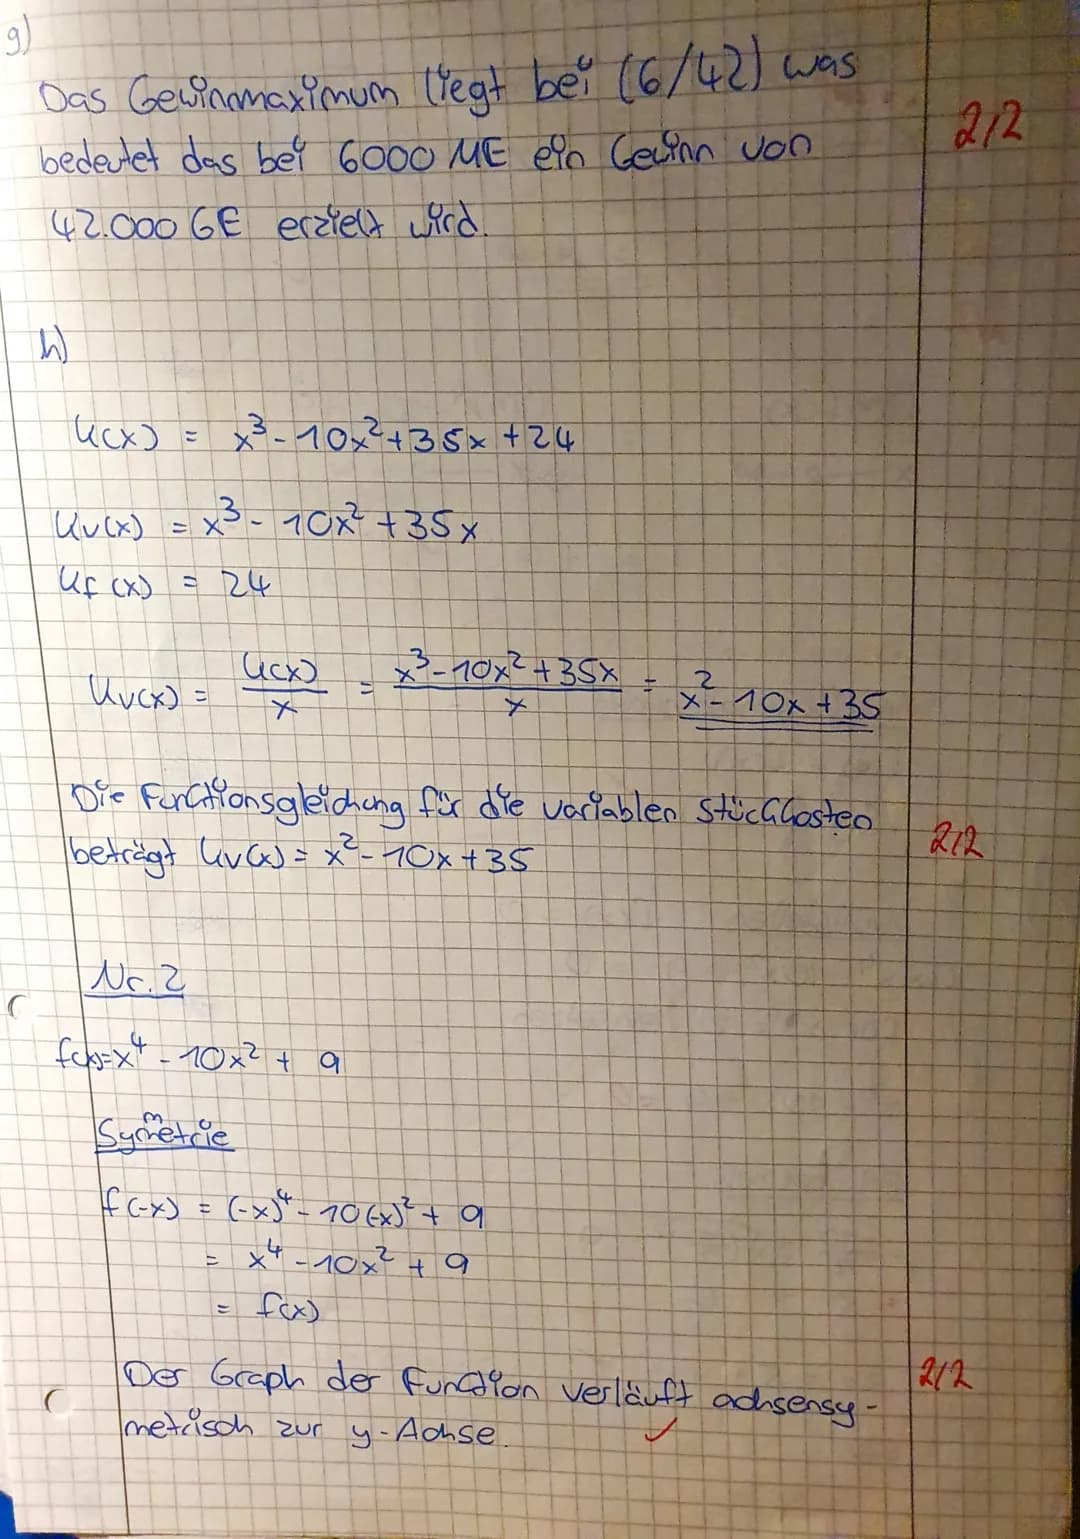 g)
Das Gewinnmaximum liegt bei (6/42) was
bedeutet das bei 6000 ME ein Gewinn von
42.000 GE erzielt wird.
2/2
h)
K(x) = x³ - 10x² + 35x + 24
Kv(x) = x³ - 10x² + 35x
Kf(x) = 24
kv(x) = K(x)/x = x³ - 10x² + 35x/x = x² - 10x + 35
Die Funktionsgleichung für die variablen Stückkosten
beträgt kv(x) = x² - 10x + 35
2/2
Nr. 2
f(x) = x⁴ - 10x² + 9
Symetrie
m
f(-x) = (-x)⁴ - 10(-x)² + 9
= x⁴ - 10x² + 9
= f(x)
Der Graph der Funktion verläuft achsensy-
metrisch zur y-Achse. ✓
2/2